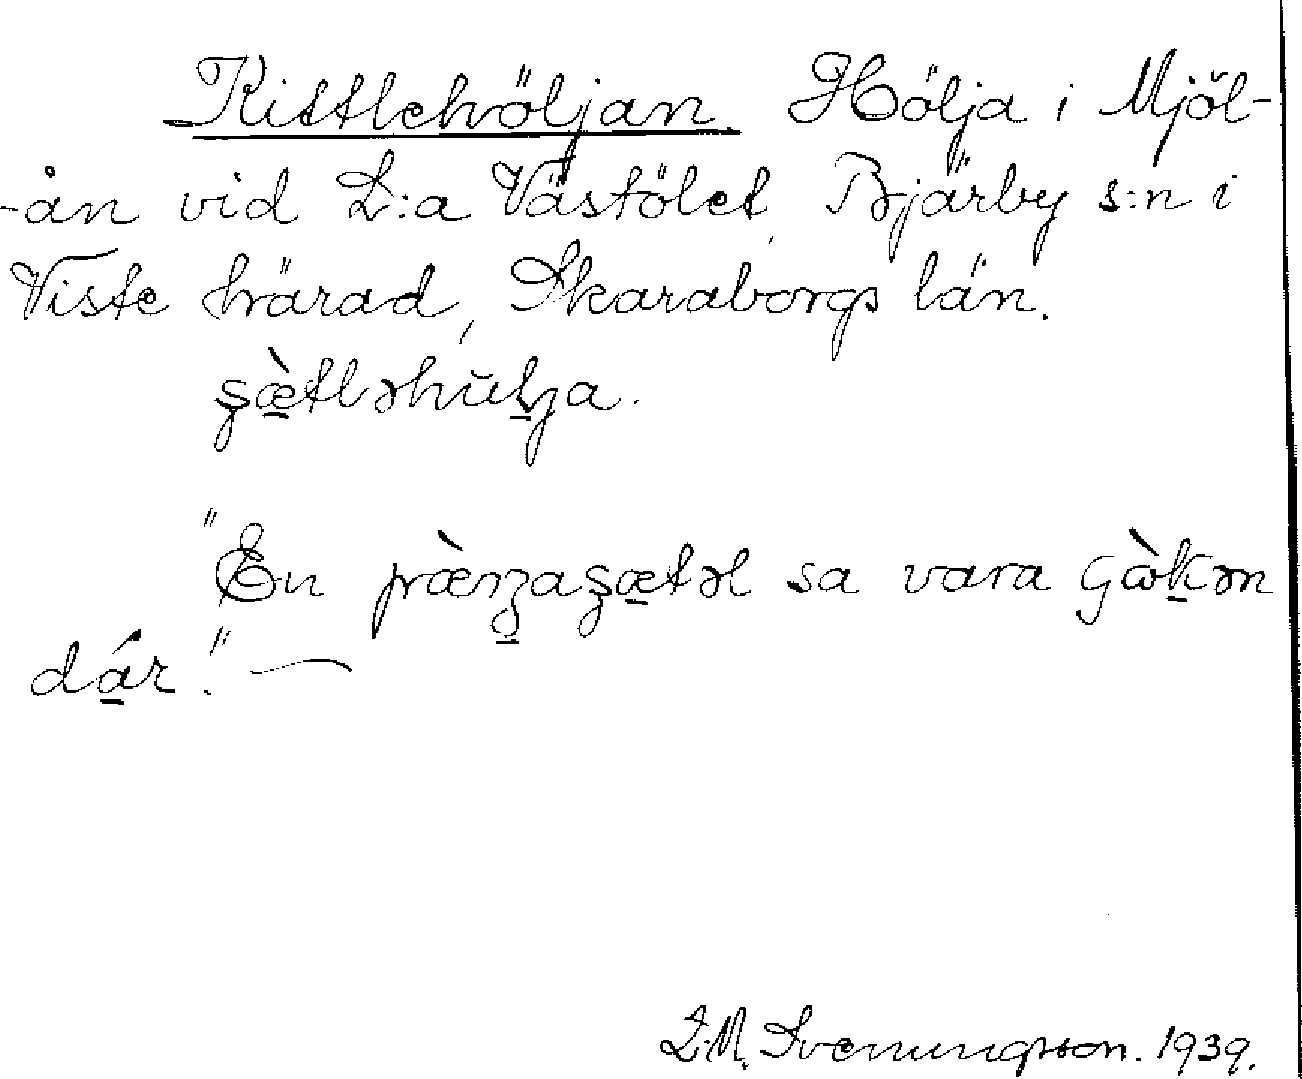 Kittlehöljan. Hölja i Mjöl-
-ån vid L:a Västölet, Bjärby s:n i
Viste härad, Skaraborgs län.
ʂæ̀tləhŭlja.
"En pæ̀nŋaʂætəl sa vara gòkən
dár!" —
L.M. Svenungsson. 1939.